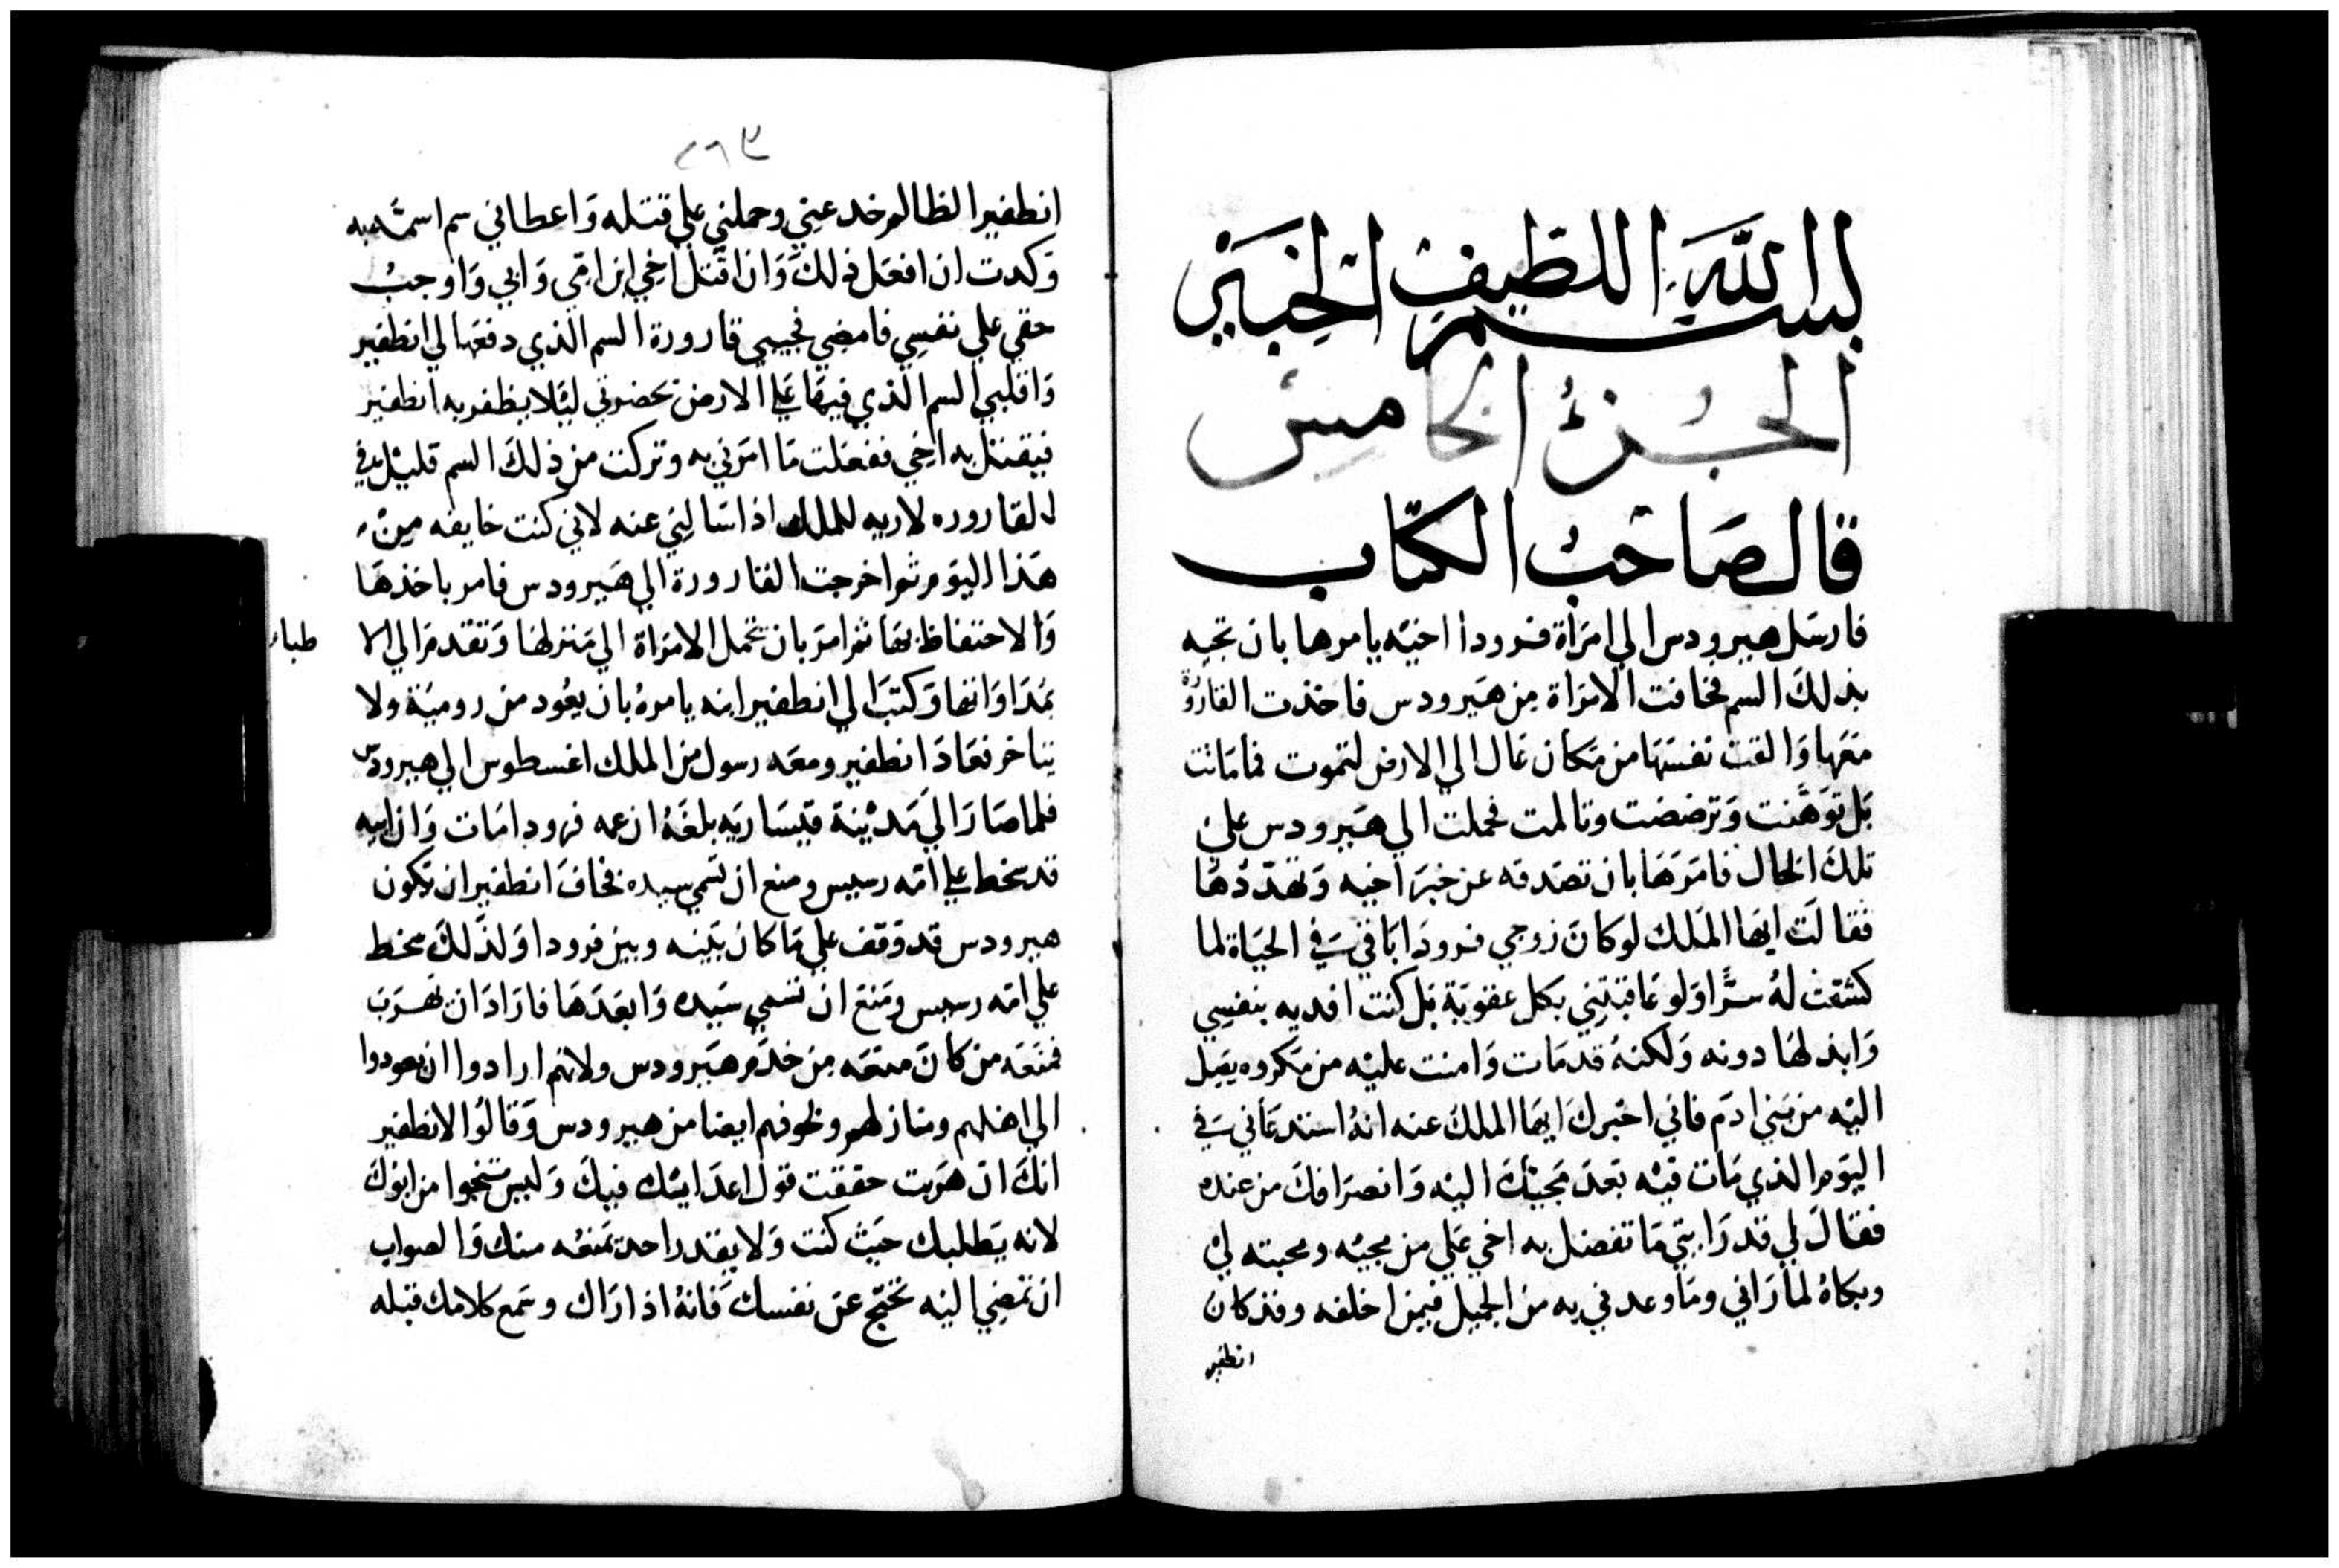 بسم الله اللطيف الخبير
الجزء الخامس
قال صاحب الكتاب
فارسل هيرودس الي امراة فرودا اخيه يامرها بان تجيه
بذلك السم فخافت الامراة من هيرودس فاخذت القارورة
معها والقت نفسها من مكان عال الي الارض لتموت فما ماتت
بل توهنت وترضضت وتالمت فحملت الي هيرودس علي
تلك الحال فامرها بان تصدقه عن خبر اخيه وتهددها
فقالت ايها الملك لو كان زوجي فرودا باقي في الحياة لما
كشفت له سرًا ولو عاقبتني بكل عقوبة بل كنت افديه بنفسي
وابذلها دونه ولكنه قد مات وامنت عليه من مكروه يصل
اليه من بني ادم فاني اخبرك ايها الملك عنه انه استدعاني في
اليوم الذي مات فيه بعد مجيئك اليه وانصرافك من عنده
فقال لي قد رايتي ما تفضل به اخي علي من مجيه ومحبته لي
وبكاه لما راني وما وعدني به من الجميل فيمن اخلفه وقد كان
انطفير
٢٦٣
انطفير الظالم خدعني وحملني علي قتله واعطاني سم اسمه به
وكدت ان افعل ذلك وان اقتل اخي ابن امي وابي واوجب
حقي علي نفسي فامضي فجيبي قارورة السم الذي دفعها لي انطفير
واقلبي السم الذي فيها علي الارض بحضرتي ليلا يظفر به انطفير
فيقتل به اخي ففعلت ما امرني به وتركت من ذلك السم قليل في
القاروره لاريه للملك اذا سالني عنه لاني كنت خايفه من
هذا اليوم ثم اخرجت القارورة الي هيرودس فامر باخذها
والاحتفاظ بها ثم امر بان تحمل الامراة الي منزلها وتقدم الي الا
طباء
بمداواتها وكتب الي انطفير ابنه يامره بان يعود من رومية ولا
يتاخر فعاد انطفير ومعه رسول من الملك اغسطوس الي هيرودس
فلما صار الي مدينة قيساريه بلغه ان عمه فرودا مات وان ابيه
قد سخط علي امه رسيس ومنع ان تسمي سيده فخاف انطفير ان يكون
هيرودس قد وقف علي ما كان بينه وبين فرودا ولذلك سخط
علي امه رسيس ومنع ان تسمي سيده وابعدها فاراد ان يهرب
فمنعه من كان معه من خدم هيرودس ولانهم ارادوا ان يعودوا
الي اهلهم ومنازلهم ولخوفهم ايضا من هيرودس وقالوا لانطفير
انك ان هربت حققت قول اعدايك فيك وليس تنجوا من ابوك
لانه يطلبك حيث كنت ولا يقدر احد يمنعه منك والصواب
ان تمضي اليه تحتج عن نفسك فانه اذا راك وسمع كلامك قبله